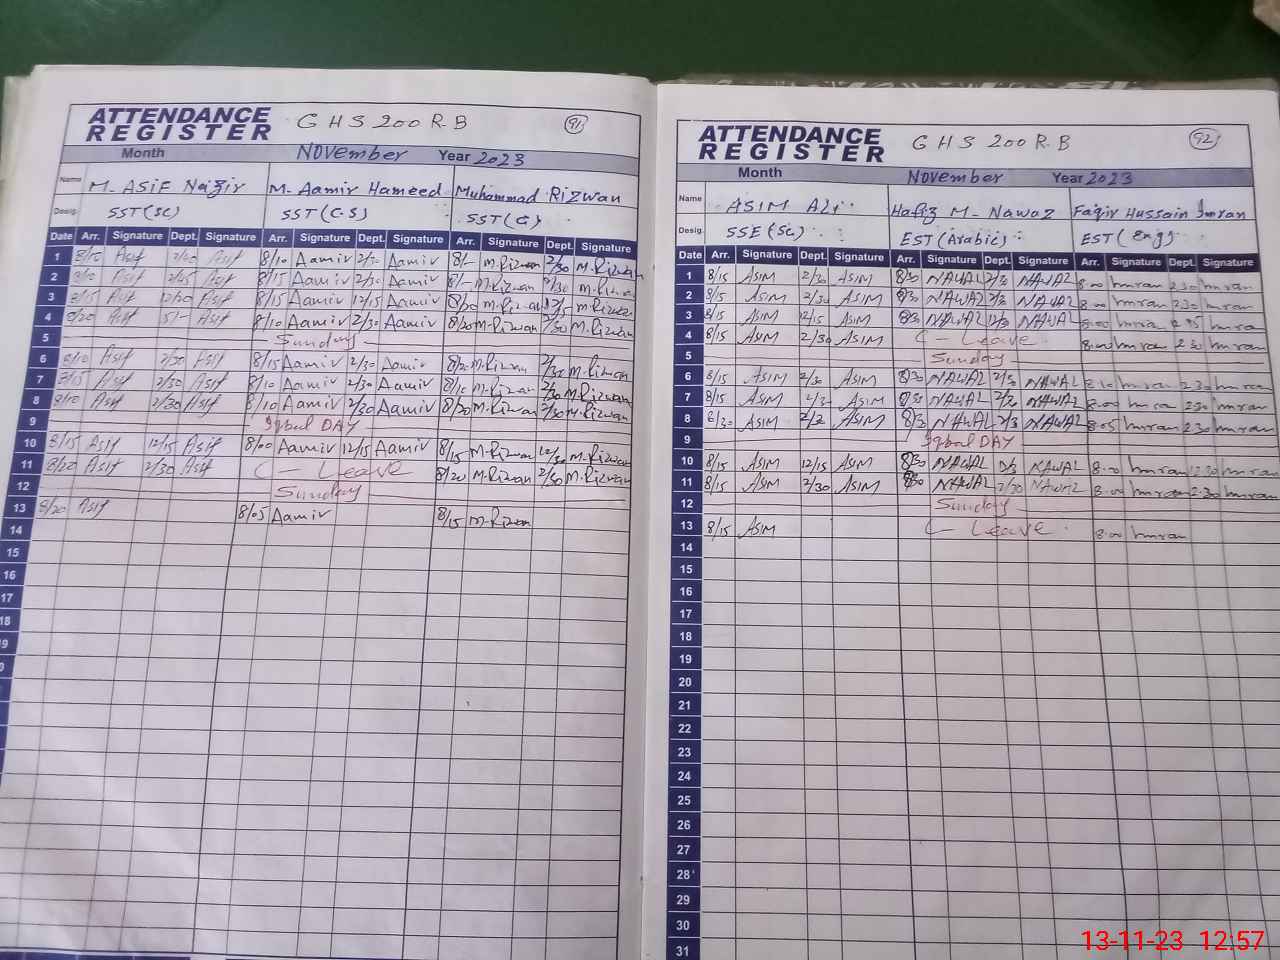 ATTENDANCE REGISTER GHS 200 R.B 91
Month November Year 2023
Name M. Asif Nazir M. Aamir Hameed Muhammad Rizwan
Desig. SST(SC) SST(C.S) SST(G)
Date Arr. Signature Dept. Signature Arr. Signature Dept. Signature Arr. Signature Dept. Signature
1 8/10 Asif Asif 8/10 Aamir 2/30 Aamir 8/- M.Rizwan 2/30 M.Rizwan
2 Asif Asif 8/15 Aamir 2/30 Aamir 8/- M.Rizwan 2/30 M.Rizwan
3 8/15 Asif 12/20 Asif 8/15 Aamir 12/15 Aamir 8/20 M.Rizwan 12/15 M.Rizwan
4 8/20 Asif 5/- Asif 8/10 Aamir 2/30 Aamir 8/20 M.Rizwan 2/30 M.Rizwan
5 Sunday
6 8/10 Asif 2/30 Asif 8/15 Aamir 2/30 Aamir 8/20 M.Rizwan 2/30 M.Rizwan
7 8/15 Asif 2/30 Asif 8/10 Aamir 2/30 Aamir 8/10 M.Rizwan 2/30 M.Rizwan
8 8/10 Asif 2/30 Asif 8/10 Aamir 2/30 Aamir 8/20 M.Rizwan 2/30 M.Rizwan
9 Iqbal DAY
10 8/15 Asif 12/15 Asif 8/00 Aamir 12/15 Aamir 8/15 M.Rizwan 12/30 M.Rizwan
11 8/20 Asif 2/30 Asif C - Leave 8/20 M.Rizwan 2/30 M.Rizwan
12 Sunday
13 8/20 Asif 8/05 Aamir 8/15 M.Rizwan
14
15
16
17
18
ATTENDANCE REGISTER GHS 200 R.B 92
Month November Year 2023
Name ASIM Ali Hafiz M. Nawaz Faqir Hussain Imran
Desig. SSE(Sc) EST(Arabic) EST(Eng)
Date Arr. Signature Dept. Signature Arr. Signature Dept. Signature Arr. Signature Dept. Signature
1 8/15 ASIM 2/30 ASIM 8/30 NAWAZ 2/30 NAWAZ 8.00 Imran 2.30 Imran
2 8/15 ASIM 2/30 ASIM 8/30 NAWAZ 2/30 NAWAZ 8.00 Imran 2.30 Imran
3 8/15 ASIM 12/15 ASIM 8/30 NAWAZ 12/30 NAWAZ 8.00 Imran Imran
4 8/15 ASIM 2/30 ASIM C - Leave 8.00 Imran 2.30 Imran
5 Sunday
6 8/15 ASIM 2/30 ASIM 8/30 NAWAZ 2/30 NAWAZ 8.10 Imran 2.30 Imran
7 8/15 ASIM 2/30 ASIM 8/30 NAWAZ 2/30 NAWAZ 8.00 Imran 2.30 Imran
8 8/30 ASIM 2/30 ASIM 8/30 NAWAZ 2/30 NAWAZ 8.05 Imran 2.30 Imran
9 Iqbal DAY
10 8/15 ASIM 12/15 ASIM 8/30 NAWAZ NAWAZ 8.00 Imran Imran
11 8/15 ASIM 2/30 ASIM 8/30 NAWAZ 2/30 NAWAZ 8.00 Imran 2.30 Imran
12 Sunday
13 8/15 ASIM C - Leave 8.00 Imran
14
15
16
17
18
19
20
21
22
23
24
25
26
27
28
29
30
31
13-11-23 12:57